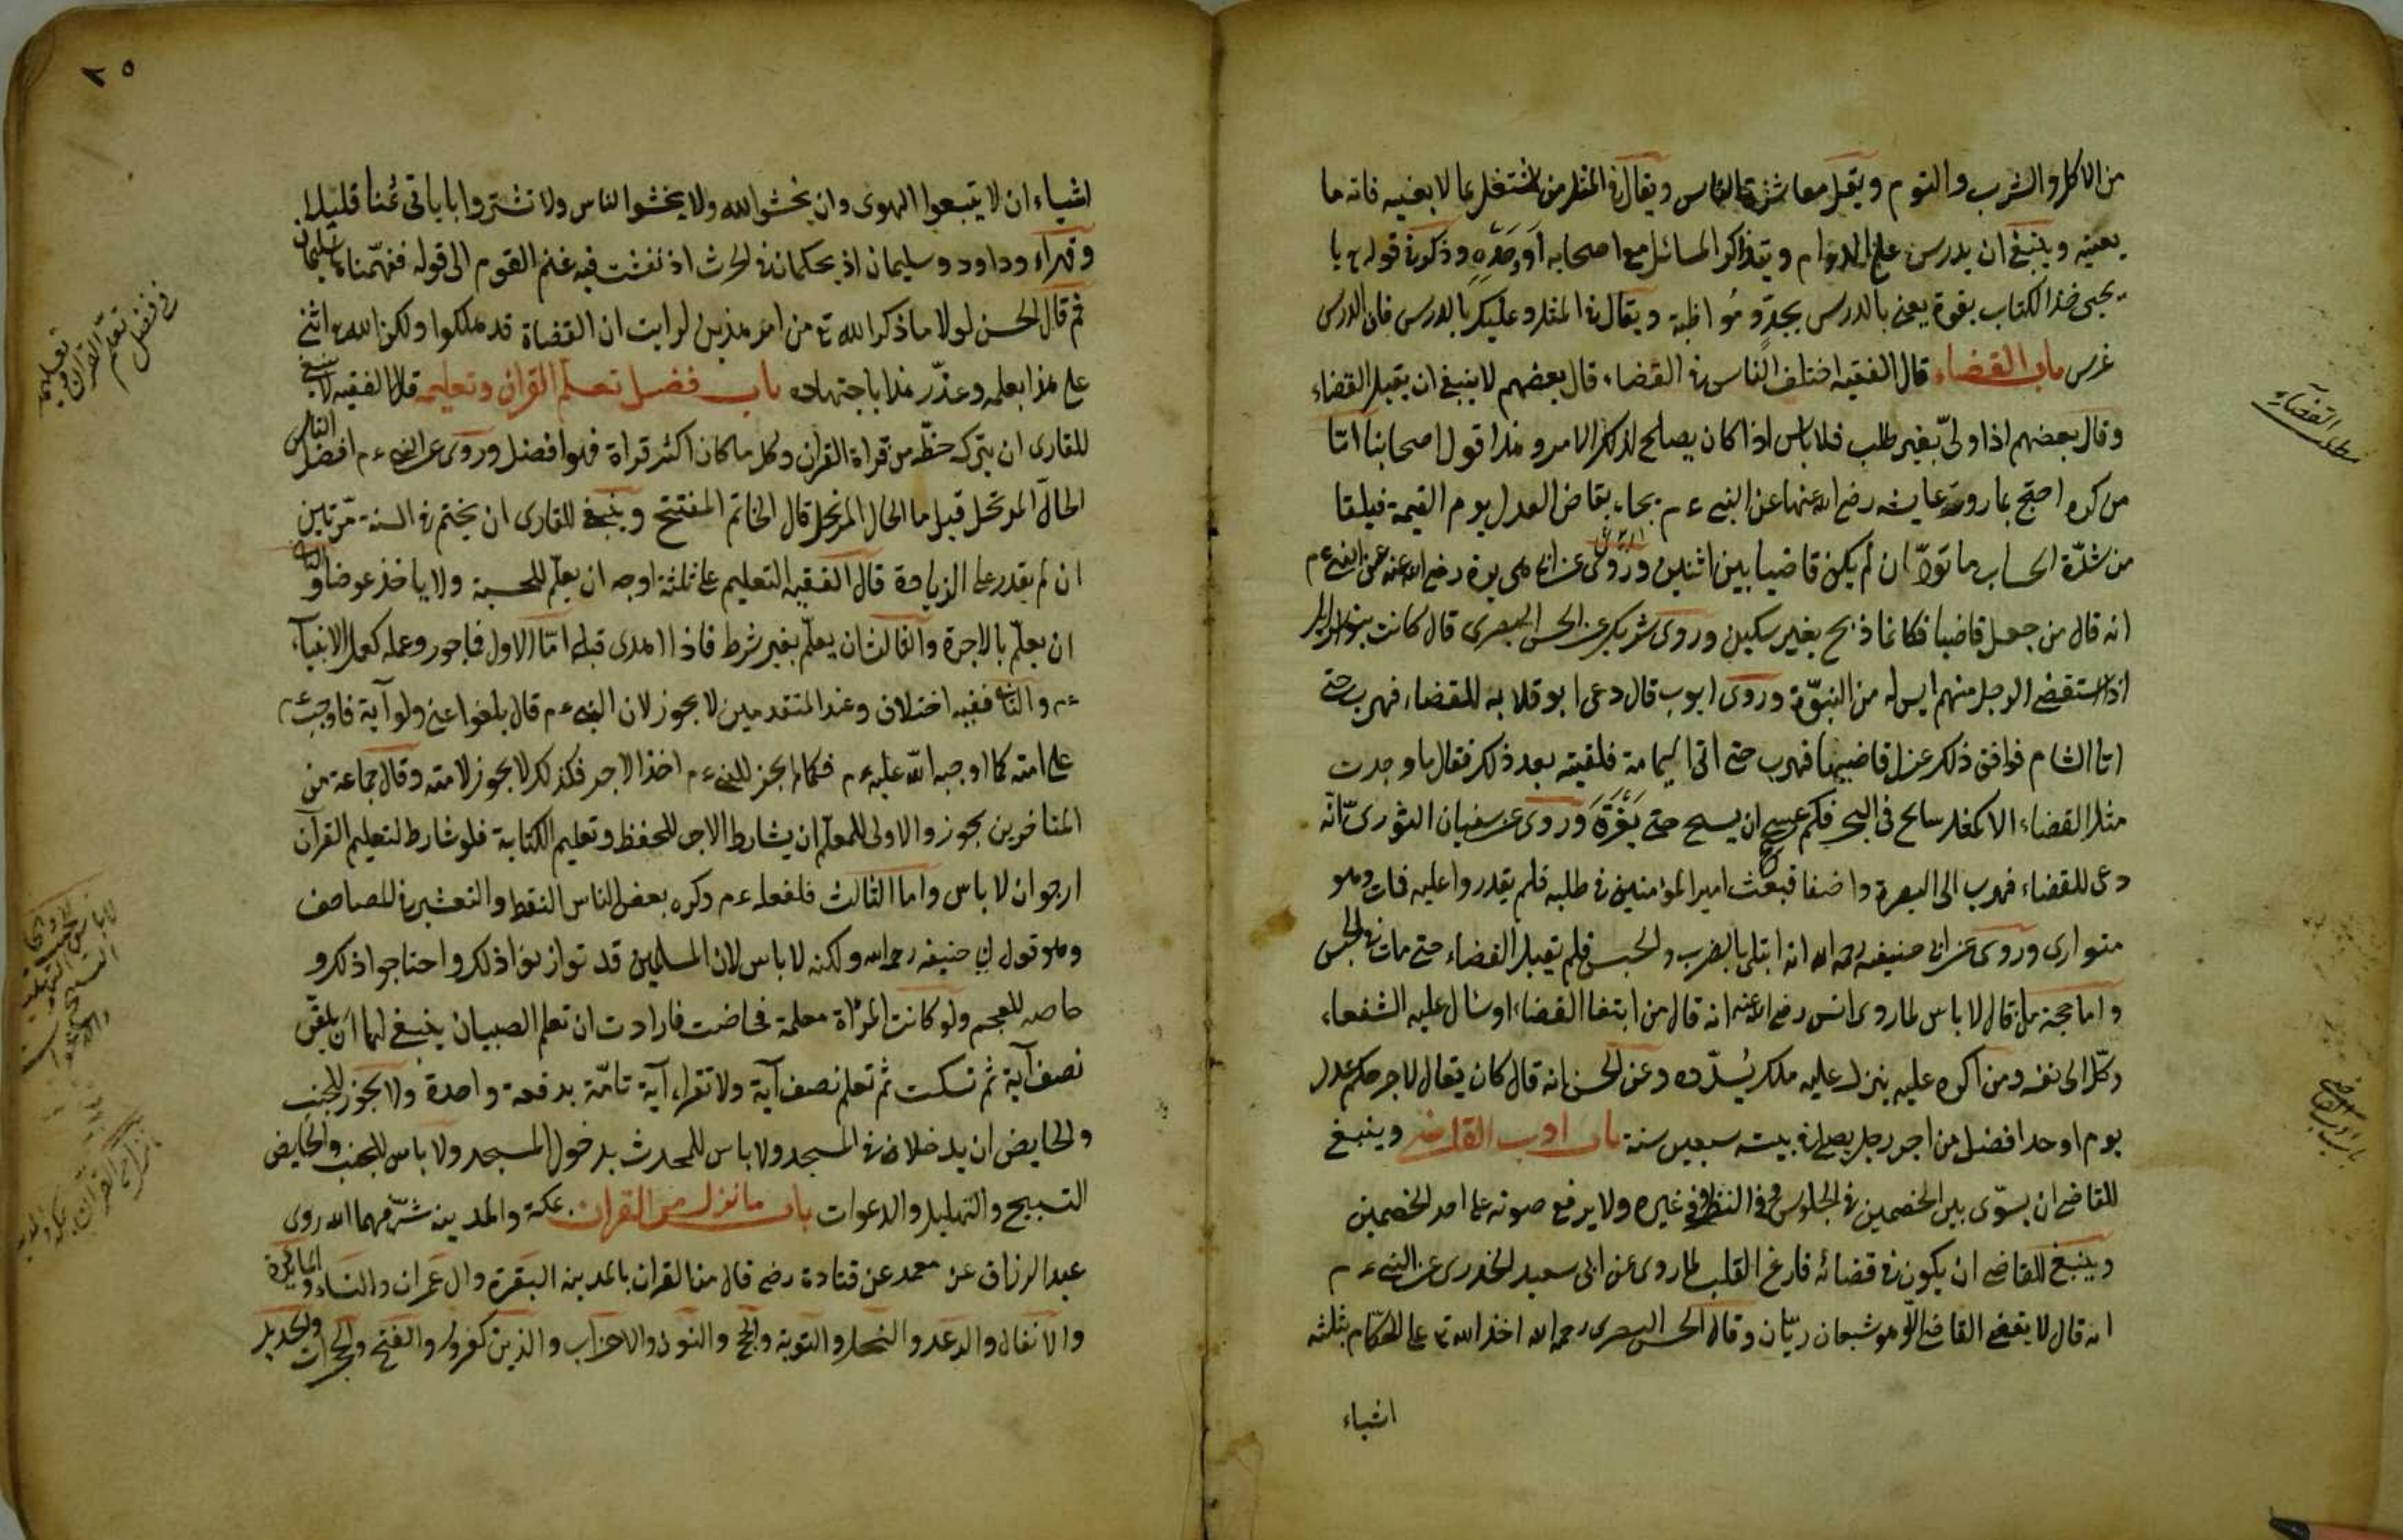 من الاكل والشرب والنوم ويقل معاشرة الناس ويقال في المثل من اشتغل بما لا يعنيه فاته ما
يعنيه وينبغي ان يدرس على الدوام ويتذاكر المسائل مع اصحابه او وحده وذكر في قوله تع يا
يحيى خذ الكتاب بقوة يعني بالدرس بجد ومواظبة ويقال في المثل وعليك بالدرس فان الدرس
غرس باب القضاء قال الفقيه اختلف الناس في القضاء قال بعضهم لا ينبغي ان يقبل القضاء
وقال بعضهم اذا ولي بغير طلب فلا باس اذا كان يصلح لذلك الامر وهذا قول اصحابنا اما
من كره احتج بما روت عايشه رضي الله عنها عن النبي ءم يجاء بقاض العدل يوم القيمة فيلقا
من شدة الحساب ما تولا ان لم يكن قاضيا بين اثنين وروى عن ابي هريرة رضي الله عنه عن النبي ءم
انه قال من جعل قاضيا فكانما ذبح بغير سكين وروى شريك عن الحسن البصرى قال كانت بنو اسرائيل
اذا استقضي الرجل منهم ايس له من النبوة وروى ايوب قال دعى ابو قلابه للقضاء فهرب حتى
اتا الشام فوافق ذلك عزل قاضيها فهرب حتى اتى اليمامة فلقيته بعد ذلك فقال ما وجدت
مثل القضاء الا كمثل سابح في البحر فكم عسى ان يسبح حتى يغرق وروى عن سفيان الثورى انه
دعى للقضاء فهرب الى البصرة واختفا فبعث امير المؤمنين في طلبه فلم يقدروا عليه فمات وهو
متوارى وروى عن ابي حنيفه رحمه الله انه ابتلى بالضرب والحبس فلم يقبل القضاء حتى مات في الحبس
واما حجة من قال لا باس لما روى انس رضي الله عنه انه قال من ابتغا القضاء وسال عليه الشفعاء
وكل الى نفسه ومن اكره عليه ينزل عليه ملك يسدده وعن الحسن انه قال كان يقال لاجر حكم عدل
يوم اوحد افضل من اجر رجل يصلي في بيته سبعين سنة باب ادب القاضي وينبغي
للقاضي ان يسوى بين الخصمين في الجلوس وفي النظر وفي غيره ولا يرفع صوته على احد الخصمين
وينبغي للقاضي ان يكون في قضائه فارغ القلب لما روى عن ابي سعيد الخدرى عن النبي ءم
انه قال لا يقضي القاضي الا وهو شبعان ريان وقال الحسن البصرى رحمه الله اخذ الله تع على الحكام بثلثه
اشياء
مطلب القضاء
باب ادب القاضي
٢٥
اشياء ان لا يتبعوا الهوى وان يخشوا الله ولا يخشوا الناس ولا تشتروا باياتى ثمنا قليلا
وقرأ وداود وسليمان اذ يحكمان في الحرث اذ نفشت فيه غنم القوم الى قوله ففهمناها سليمان
ثم قال الحسن لولا ما ذكر الله تع من امر هذين لرايت ان القضاة قد هلكوا ولكن الله تع اثنى
على هذا بعلمه وعذر هذا باجتهاده باب فضل تعلم القران وتعليمه قال الفقيه لا ينبغي
للقارى ان يترك حظه من قراة القران وكل ما كان اكثر قراة فهو افضل وروى عن النبي ءم افضل الناس
الحال المرتحل قيل ما الحال المرتحل قال الخاتم المفتتح وينبغي للقارى ان يختم في السنة مرتين
ان لم يقدر على الزيادة قال الفقيه التعليم على ثلثة اوجه ان يعلم للحسبة ولا ياخذ عوضا والثاني
ان يعلم بالاجرة والثالث ان يعلم بغير شرط فاذا اهدى قبله اما الاول فماجور وعمله كعمل الانبياء
ءم والثاني ففيه اختلاف وعند المتقدمين لا يجوز لان النبي ءم قال بلغوا عني ولو آية فاوجب ءم
على امته كما اوجبه الله عليه ءم فكما لم يجز للنبي ءم اخذ الاجر فكذلك لا يجوز لامته وقال جماعة من
المتاخرين يجوز والاولى للمعلم ان يشارط الاجر للحفظ وتعليم الكتابة فلو شارط لتعليم القرآن
ارجو ان لا باس واما الثالث فلفعله ءم وكره بعض الناس النقط والتعشير في المصاحف
وهو قول ابي حنيفه رحمه الله ولكنه لا باس لان المسلمين قد توارثوا ذلك واحتاجوا ذلك و
خاصه للعجم ولو كانت المرأة معلمة فحاضت فارادت ان تعلم الصبيان ينبغي لها ان تلقن
نصف آية ثم تسكت ثم تعلم نصف آية ولا تقراء آية تامة بدفعة واحدة ولا يجوز للجنب
والحايض ان يدخلان في المسجد ولا باس للمحدث بدخول المسجد ولا باس للجنب والحايض
التسبيح والتهليل والدعوات باب ما نزل من القران بمكة والمدينه شرفهما الله روى
عبد الرزاق عن معمر عن قتادة رضي قال من القران بالمدينه البقرة وال عمران والنساء والمائدة
والانفال والرعد والنحل والتوبة والحج والنور والاحزاب والذين كفروا والفتح والحجرات والحديد
في فضل
تعلم القران
وتعليمه